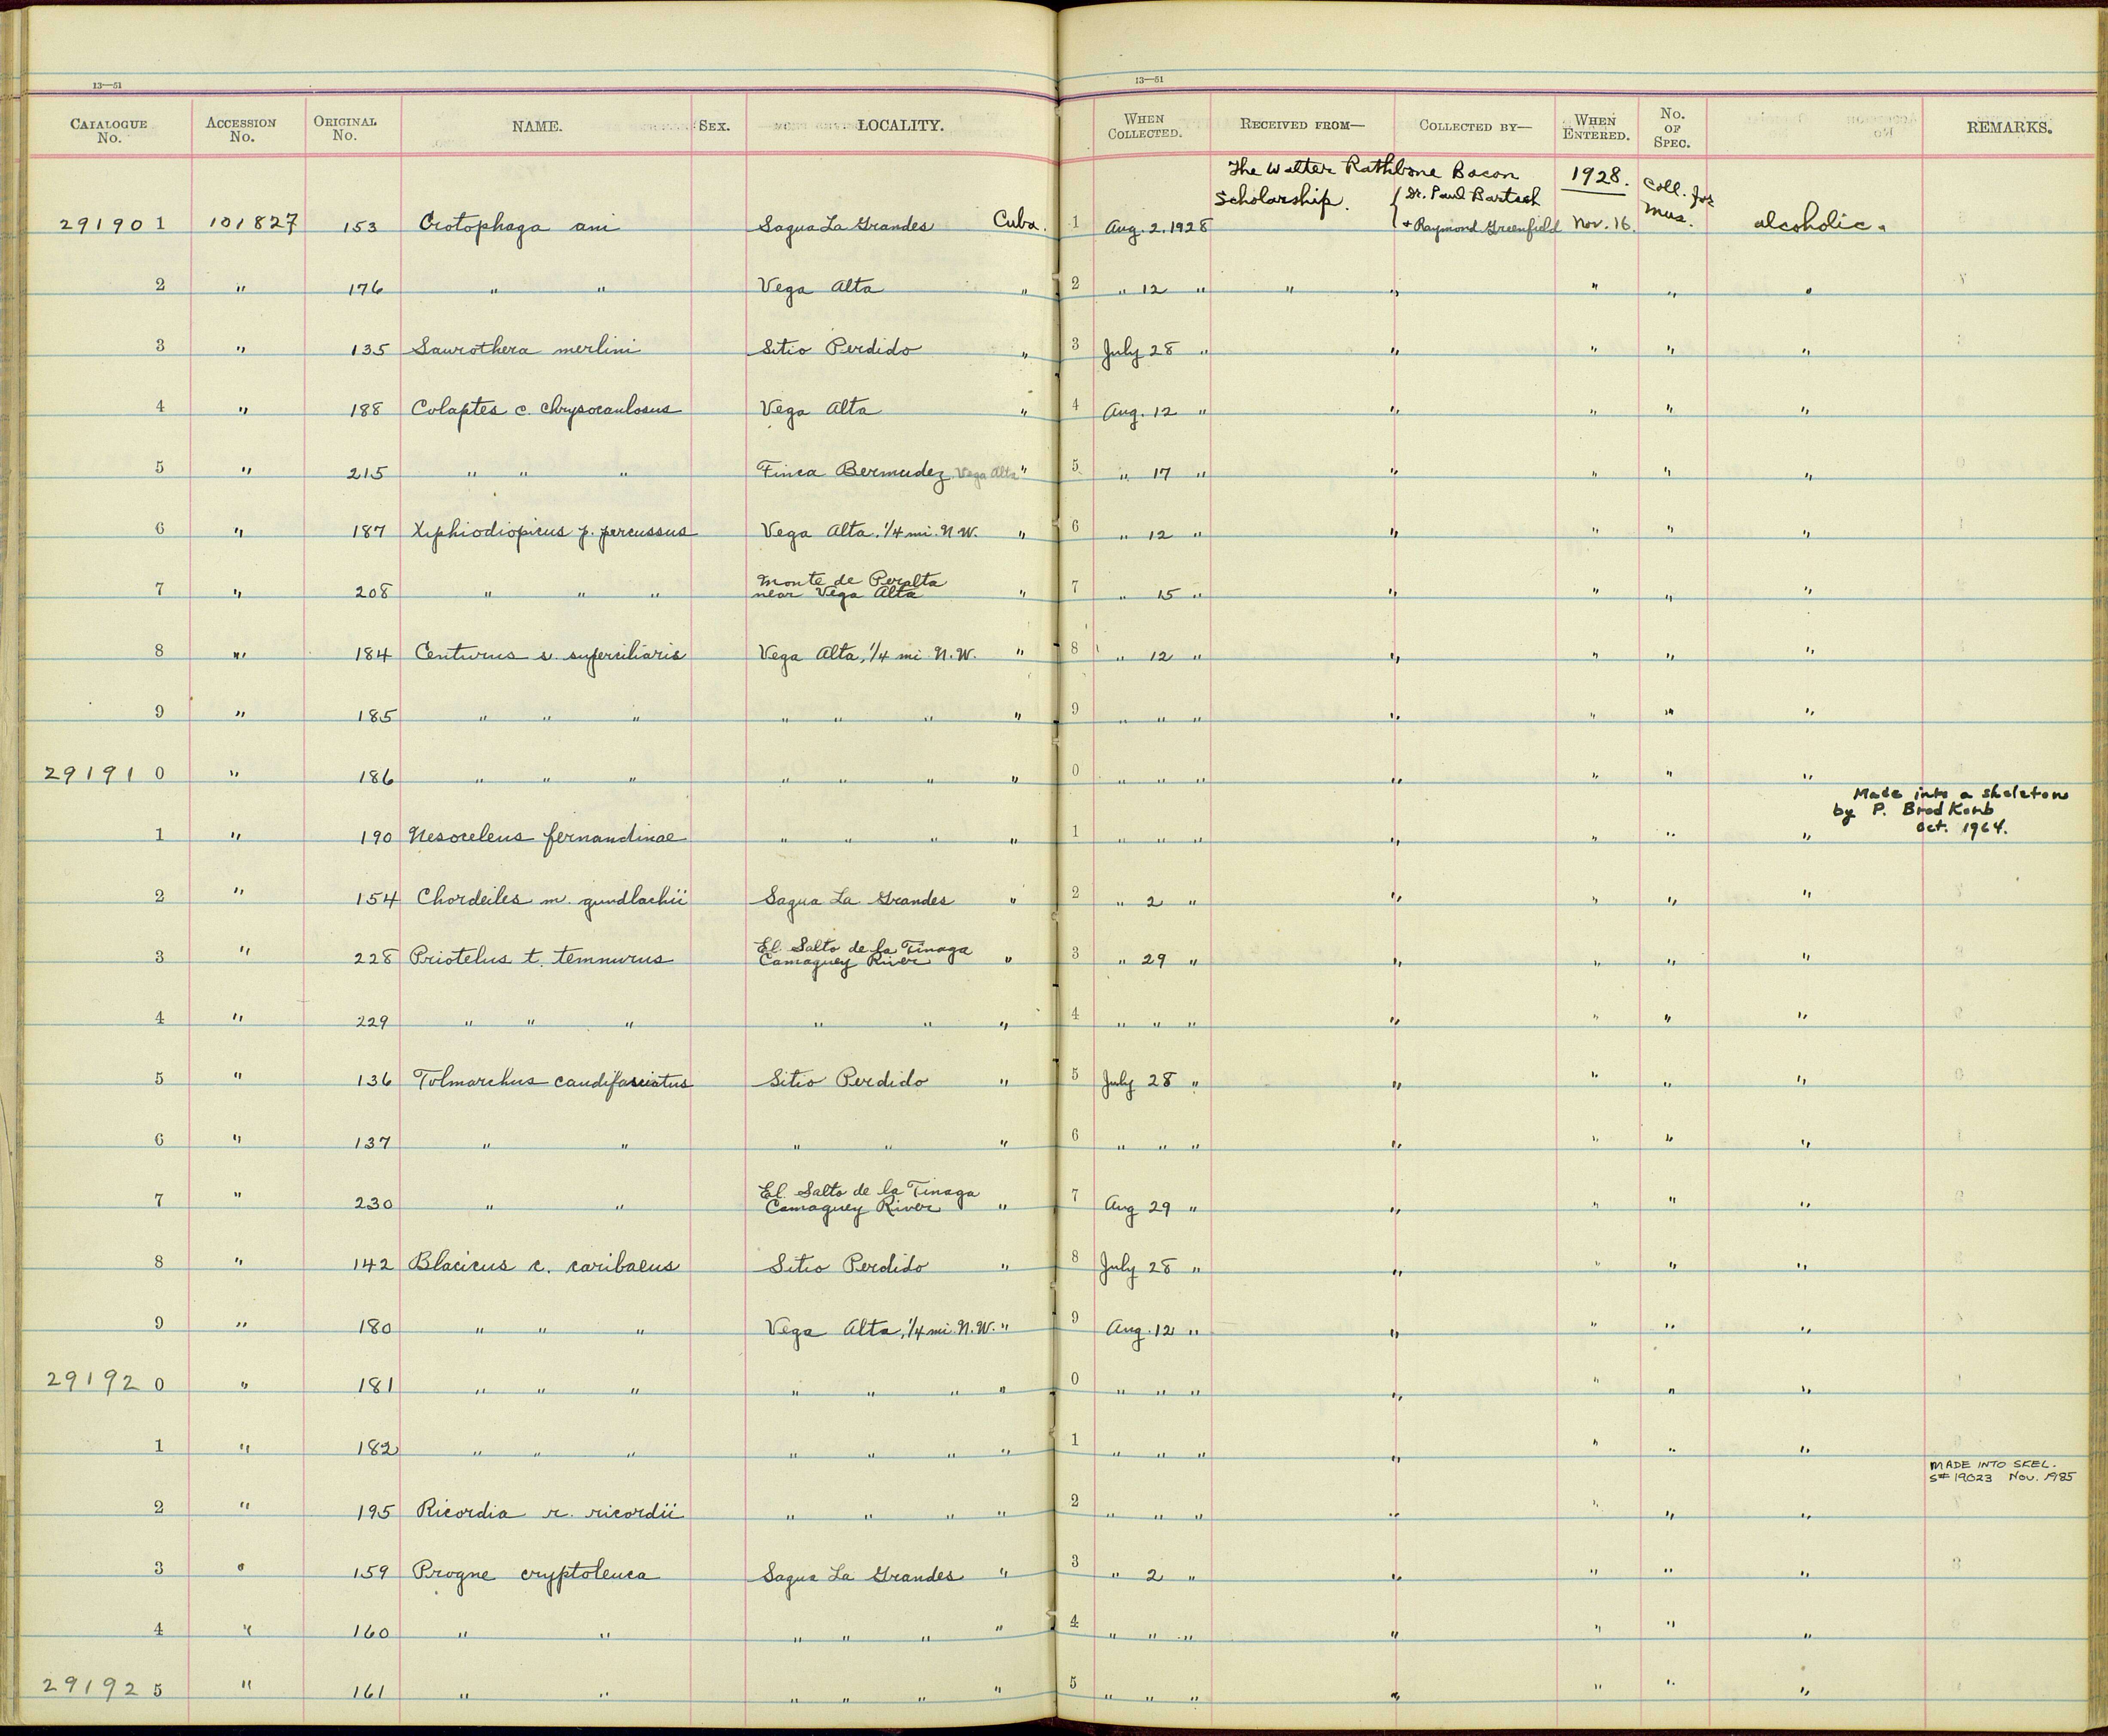 13—51 13—51
CATALOGUE No. ACCESSION No. ORIGINAL No. NAME. SEX. LOCALITY. WHEN COLLECTED. RECEIVED FROM— COLLECTED BY— WHEN ENTERED. No. OF SPEC. REMARKS.
The Walter Rathbone Bacon 1928. Coll. for
Scholarship. { Dr. Paul Bartsch Mus.
291901 101827 153 Crotophaga ani Sagua La Grandes Cuba. 1 Aug. 2, 1928 + Raymond Greenfield Nov. 16. alcoholic.
2 " 176 " " Vega Alta " 2 " 12 " " " " " "
3 " 135 Saurothera merlini Sitio Perdido " 3 July 28 " " " " "
4 " 188 Colaptes c. chrysocaulosus Vega Alta " 4 Aug. 12 " " " " "
5 " 215 " " " Finca Bermudez Vega Alta " 5 " 17 " " " " "
6 " 187 Xiphiodiopicus p. percussus Vega Alta, 1/4 mi. N.W. " 6 " 12 " " " " "
7 " 208 " " " Monte de Peralta
near Vega Alta " 7 " 15 " " " " "
8 " 184 Centurus s. superciliaris Vega Alta, 1/4 mi N.W. " 8 " 12 " " " " "
9 " 185 " " " " " " " 9 " " " " " " "
291910 " 186 " " " " " " " 0 " " " " " " "
Made into a skeleton
by P. BrodKorb
Oct. 1964.
1 " 190 Nesoceleus fernandinae " " " " 1 " " " " " " "
2 " 154 Chordeiles m. gundlachii Sagua La Grandes " 2 " 2 " " " " "
3 " 228 Priotelus t. temnurus El. Salto de la Tinaga
Camaguey River " 3 " 29 " " " " "
4 " 229 " " " " " " 4 " " " " " " "
5 " 136 Tolmarchus caudifasciatus Sitio Perdido " 5 July 28 " " " " "
6 " 137 " " " " " 6 " " " " " " "
7 " 230 " " El. Salto de la Tinaga
Camaguey River " 7 Aug 29 " " " " "
8 " 142 Blacicus c. caribaeus Sitio Perdido " 8 July 28 " " " " "
9 " 180 " " " Vega Alta, 1/4 mi. N.W. " 9 Aug. 12 " " " " "
291920 " 181 " " " " " " " 0 " " " " " " "
1 " 182 " " " " " " " 1 " " " " " " "
MADE INTO SKEL.
S# 19023 Nov. 1985
2 " 195 Ricordia r. ricordii " " " " 2 " " " " " " "
3 " 159 Progne cryptoleuca Sagua La Grandes " 3 " 2 " " " " "
4 " 160 " " " " " " 4 " " " " " " "
291925 " 161 " " " " " " 5 " " " " " " "